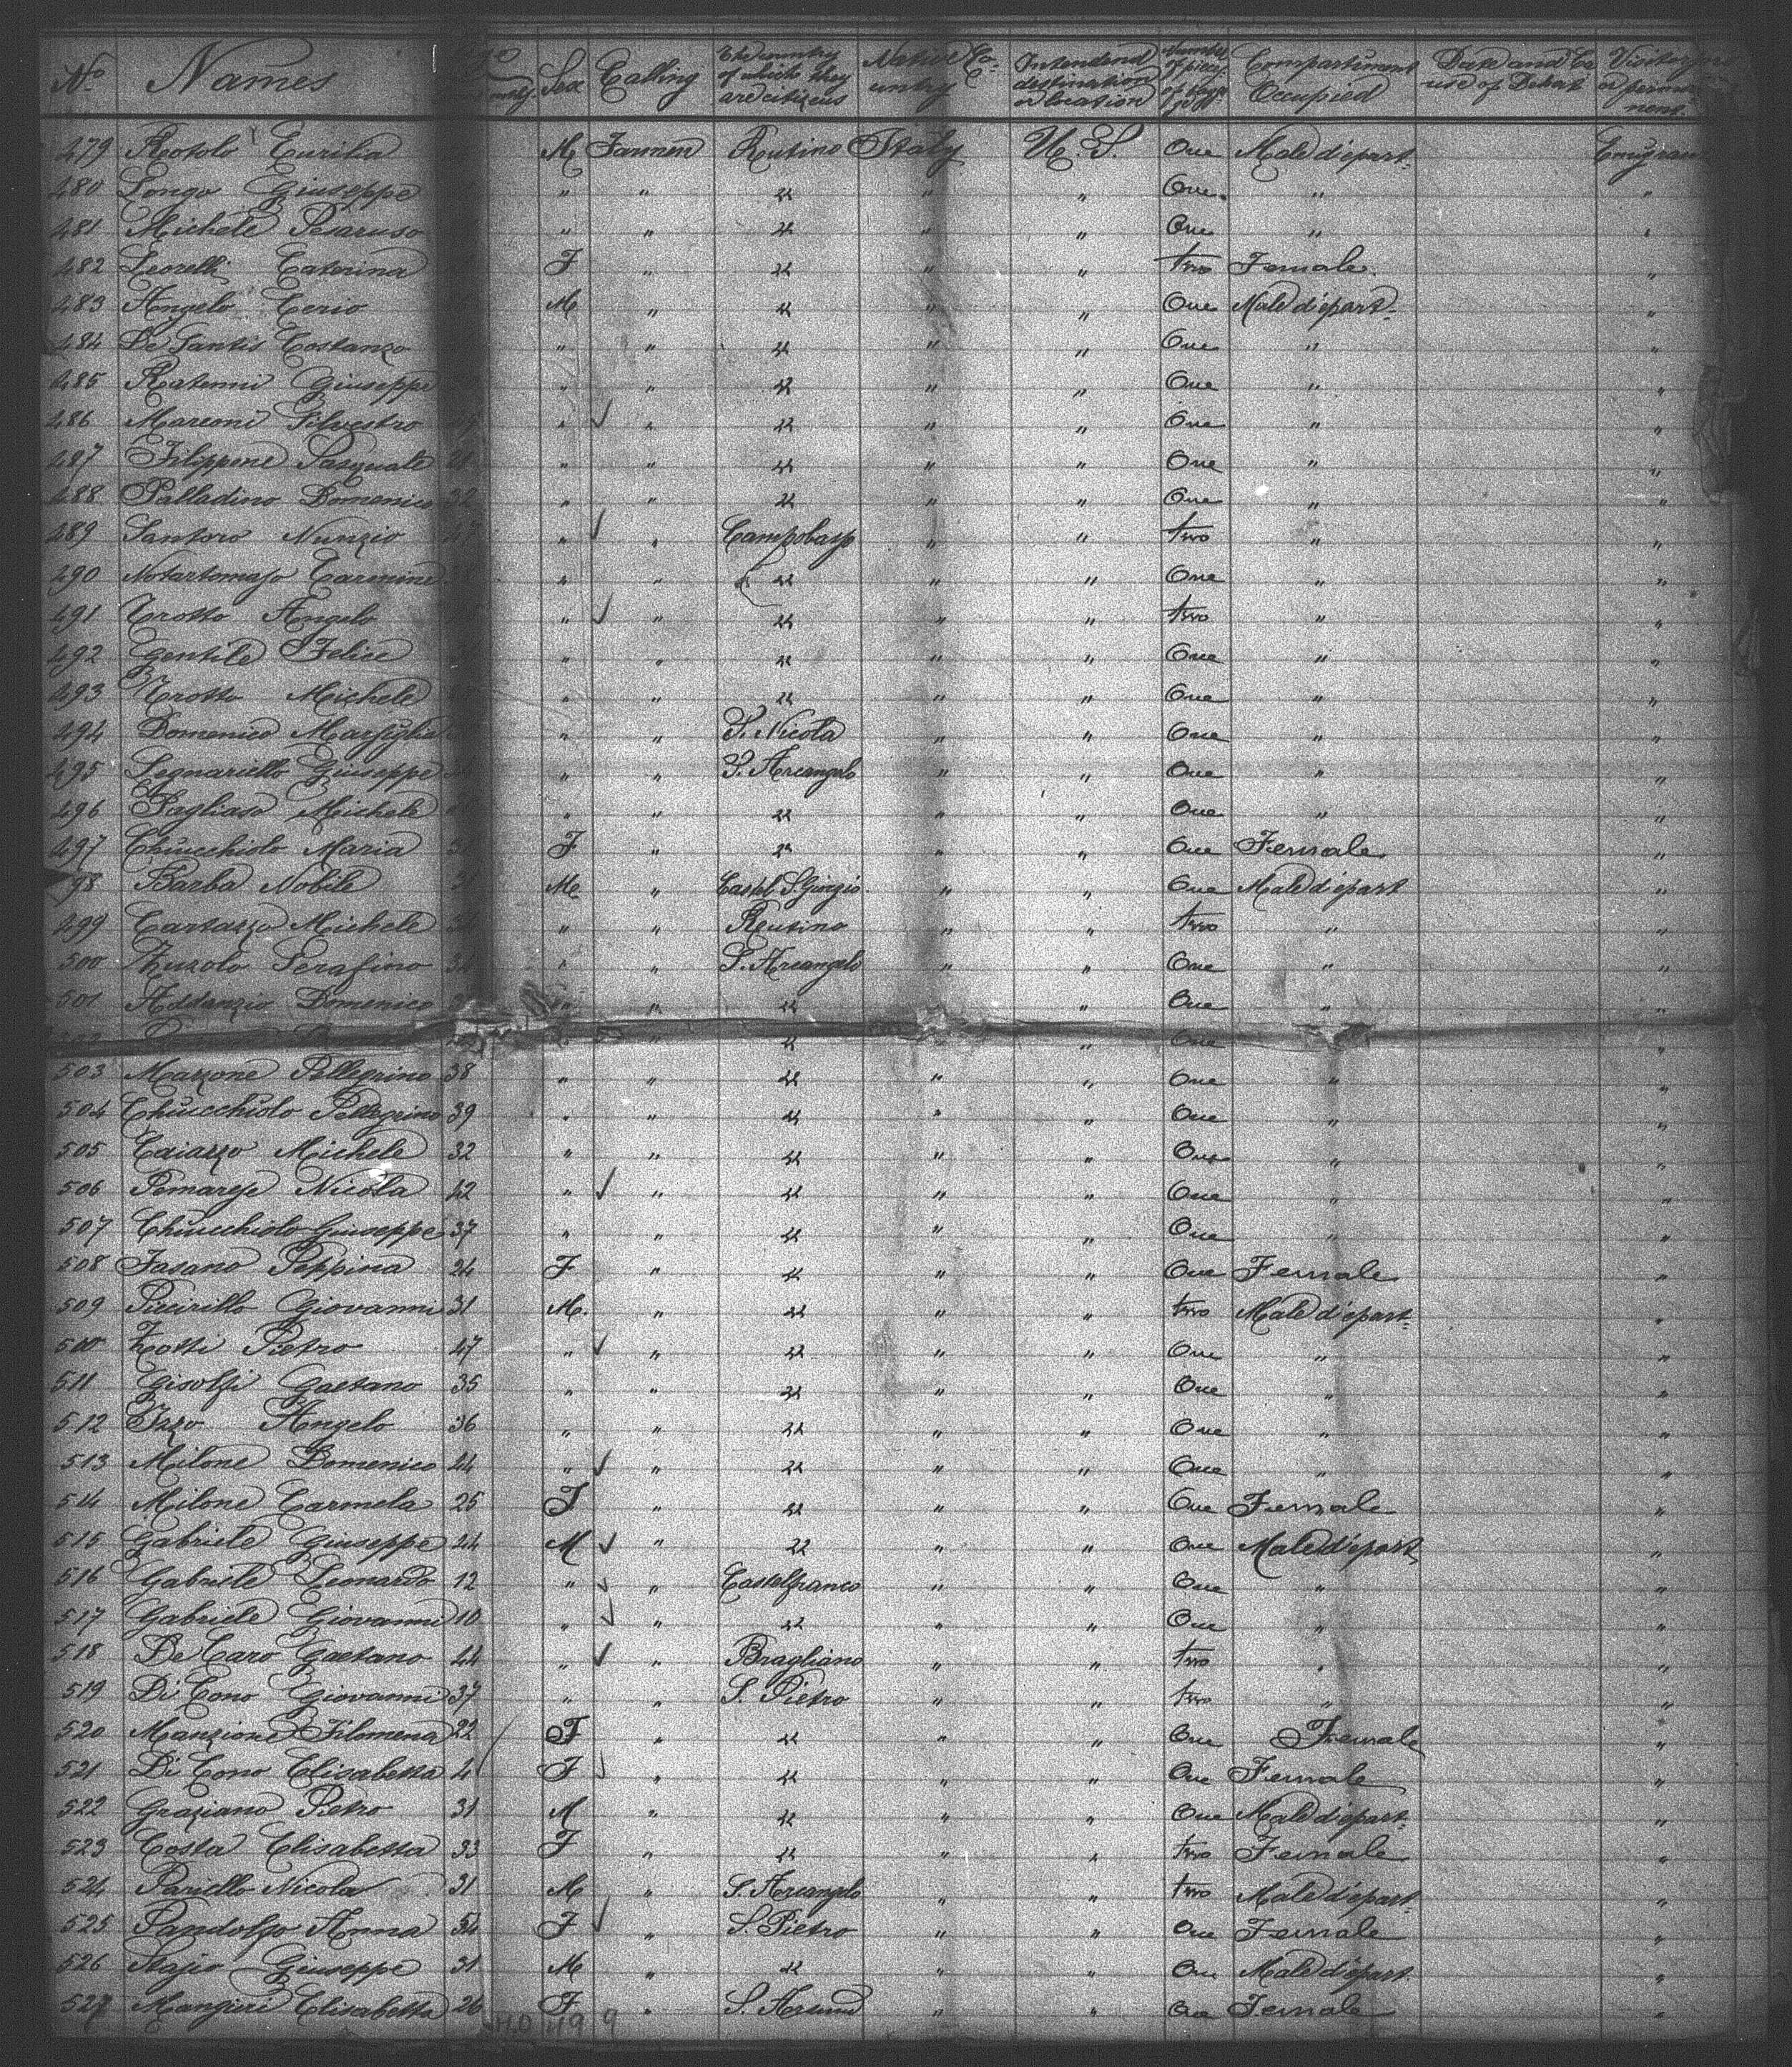 No Names Age Sex Calling The country of which they are citizens Native Country Intendend destination or location Number of pieces of bagage Compartiment Occupied Date and Cause of Deheat Visitor or permanent.
479 Rotolo Eurilia M Farmen Rutino Italy U. S. One Male d'epart. Emigrant
480 Longo Giuseppe " " " " " One. " "
481 Michele Pesaruso " " " " " One " "
482 Leorelli Caterina F " " " " two Female. "
483 Angelo Cerio M " " " " One Male d'epart. "
484 De Santis Costanzo " " " " " One " "
485 Ratenni Giuseppe " " " " " One " "
486 Marconi Silvestro " " " " " One " "
487 Filippone Pasquale " " " " " One " "
488 Palladino Domenico 32 " " " " " One " "
489 Santoro Nunzio 47 " " Campobasso " " two " "
490 Notartomaso Carmine " " " " " One " "
491 Trotto Angelo " " " " " two " "
492 Gentile Felice " " " " " One " "
493 Trotto Michele " " " " " One " "
494 Domenico Marsiglia " " S. Nicola " " One " "
495 Legnariello Giuseppe " " S. Arcangelo " " One " "
496 Pagliaso Michele " " " " " One " "
497 Chiucchiolo Maria F " " " " One Female. "
98 Barba Nobile M " Castel S. Giorgio " " One Male d'epart "
499 Cartazzo Michele " " Rutino " " two " "
500 Zuzolo Serafino " " S. Arcangelo " " One " "
501 Addanzio Domenico " " " " " One " "
" " " " " One " "
503 Marzone Pellegrino 38 " " " " " One " "
504 Chiucchiolo Pellegrino 39 " " " " " One " "
505 Caiazzo Michele 32 " " " " " One " "
506 Pemarese Nicola 42 " " " " " One " "
507 Chiucchiolo Giuseppe 37 " " " " " One " "
508 Fasano Peppina 24 F " " " " One Female "
509 Piccirillo Giovanni 31 M. " " " " two Male d'epart. "
510 Zotti Pietro 47 " " " " " One " "
511 Gisolfi Gaetano 35 " " " " " One " "
512 Izzo Angelo 36 " " " " " One " "
513 Milone Domenico 24 " " " " " One " "
514 Milone Carmela 25 F " " " " One Female "
515 Gabriele Giuseppe 44 M " " " " One Male d'epart "
516 Gabriele Leonardo 12 " " Castelfranco " " One " "
517 Gabriele Giovanni 10 " " " " " One " "
518 De Caro Gaetano 44 " " Bragliano " " two " "
519 Di Cono Giovanni 37 " " S. Pietro " " two " "
520 Manzione Filomena 22 F " " " " One Female "
521 Di Cono Elisabetta 4 F " " " " One Female "
522 Graziano Pietro 31 M " " " " One Male d'epart. "
523 Costa Elisabetta 33 F " " " " two Female "
524 Pariello Nicola 31 M " S. Arcangelo " " two Male d'epart. "
525 Pandolfo Anna 54 F " S. Pietro " " One Female "
526 Stajio Giuseppe 31 M " " " " One Male d'epart. "
527 Mangieri Elisabetta 26 F " " " One Female "